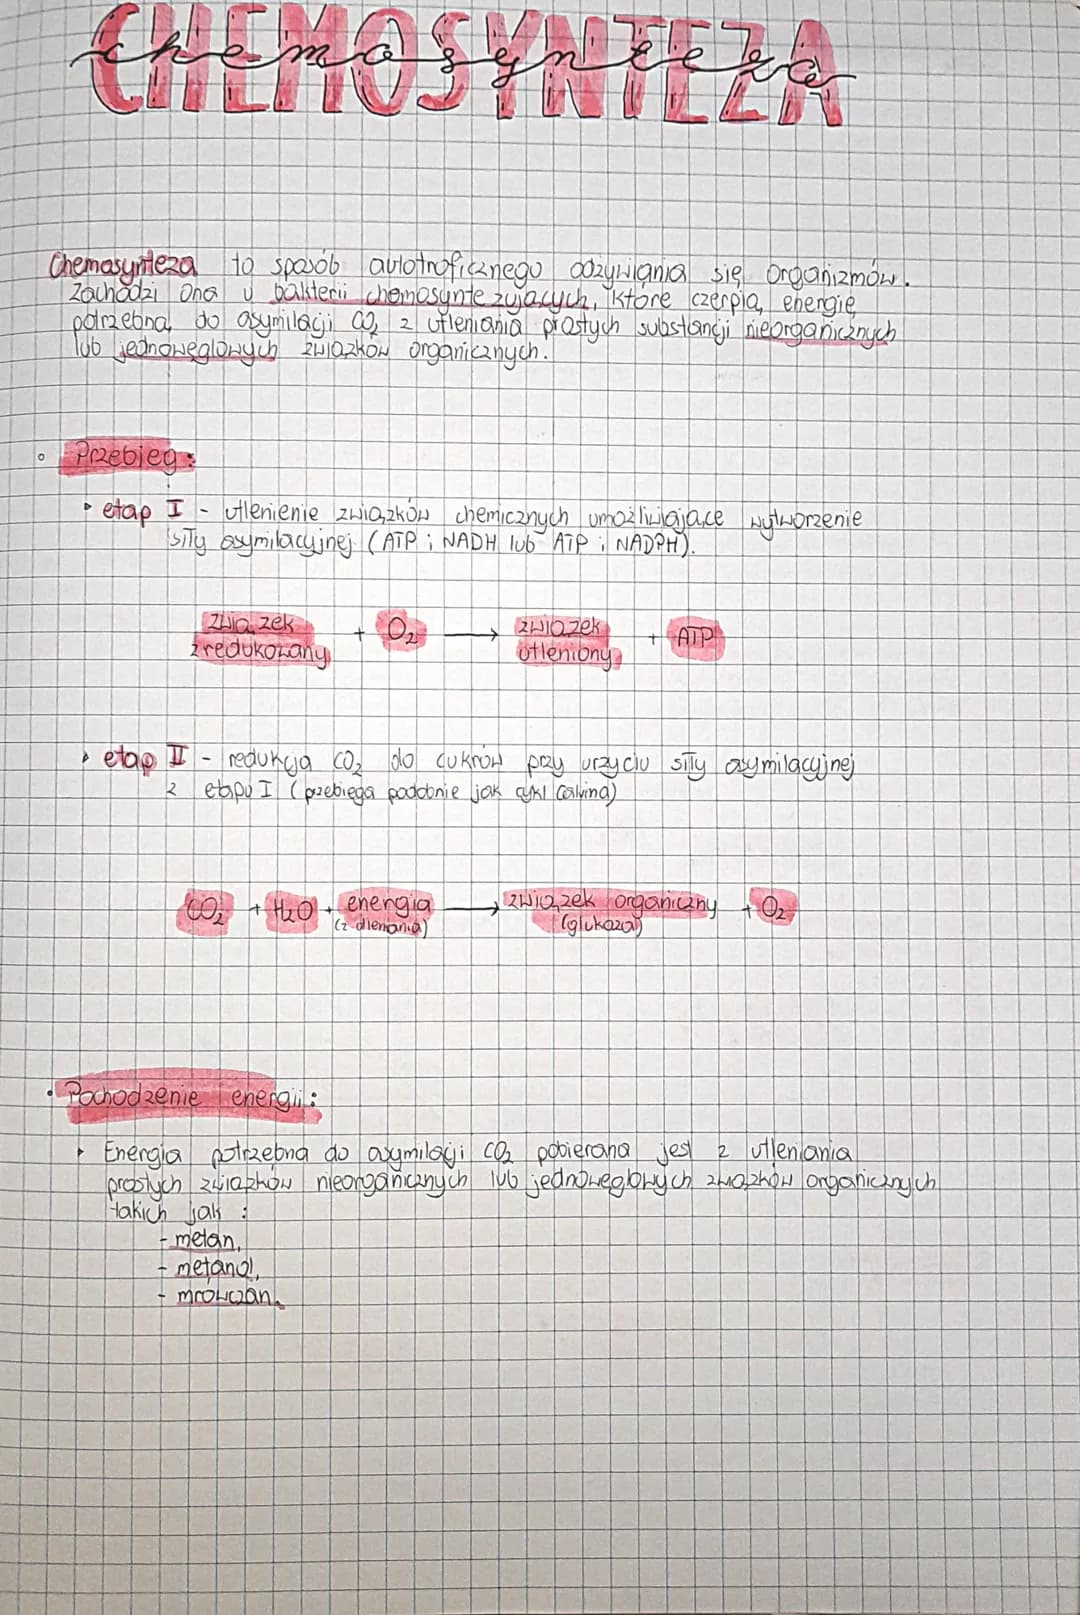 CHEMOSYNTEZA
chemosynteza
Chemosynteza to sposób autotroficznego odżywiania się organizmów.
Zachodzi ona u bakterii chemosyntezujących, które czerpią energię
potrzebną do asymilacji CO₂ z utleniania prostych substancji nieorganicznych
lub jednowęglowych związków organicznych.
Przebieg:
etap I - utlenienie związków chemicznych umożliwiające wytworzenie
siły asymilacyjnej (ATP i NADH lub ATP i NADPH).
związek zredukowany + O₂ → związek utleniony + ATP
etap II - redukcja CO₂ do cukrów przy urzyciu siły asymilacyjnej
z etapu I (przebiega podobnie jak cykl Calvina)
CO₂ + H₂O + energia (z utleniania) → związek organiczny (glukoza) + O₂
Pochodzenie energii:
Energia potrzebna do asymilacji CO₂ pobierana jest z utleniania
prostych związków nieorganicznych lub jednowęglowych związków organicznych
takich jak:
- metan,
- metanol,
- mrówczan.